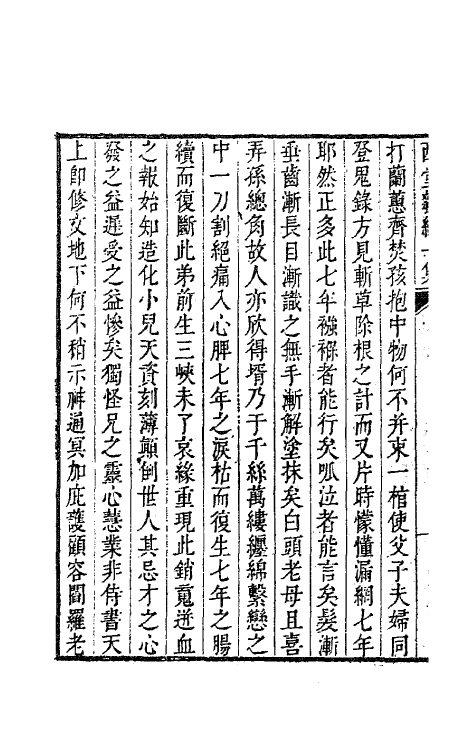 西堂雜組一集
打蘭蕙齊焚孩抱中物何不并束一棺使父子夫婦同
登鬼錄方見斬草除根之計而又片時懞懂漏網七年
耶然正多此七年襁褓者能行矣呱泣者能言矣髮漸
垂齒漸長目漸識之無手漸解塗抹矣白頭老母且喜
弄孫總角故人亦欣得壻乃于千絲萬縷纏綿繫戀之
中一刀割絕痛入心脾七年之淚枯而復生七年之腸
續而復斷此弟前生三峽未了哀緣重現此銷䰟迸血
之報始知造化小兒天資刻薄顛倒世人其忌才之心
發之益遲受之益慘矣獨怪兄之靈心慧業非侍書天
上卽修文地下何不稍示神通冥加庇護顧容閻羅老